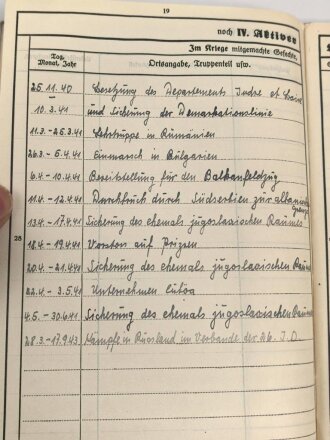 19
noch IV. Aktiver
Im Kriege mitgemachte Gefechte,
Tag, Monat, Jahr
Ortsangabe, Truppenteil usw.
25.11.40 Besetzung des Departements Indre et Loire
10.3.41 und Sicherung der Demarkationslinie
11.3.-25.3.41 Lehrtruppe in Rumänien
26.3.-5.4.41 Einmarsch in Bulgarien
6.4.-10.4.41 Bereitstellung für den Balkanfeldzug
11.4.-12.4.41 Durchbruch durch Südserbien zur alban.
Grenze
13.4.-17.4.41 Sicherung des ehemals jugoslavischen Raumes
18.4.-19.4.41 Vorstoß auf Prizren
20.4.-21.4.41 Sicherung des ehemals jugoslavischen Raumes
22.4.-3.5.41 Unternehmen
4.5.-30.6.41 Sicherung des ehemals jugoslavischen Raumes
28.3.-17.9.43 Kämpfe in Russland im Verbande der 26. I.D.
28